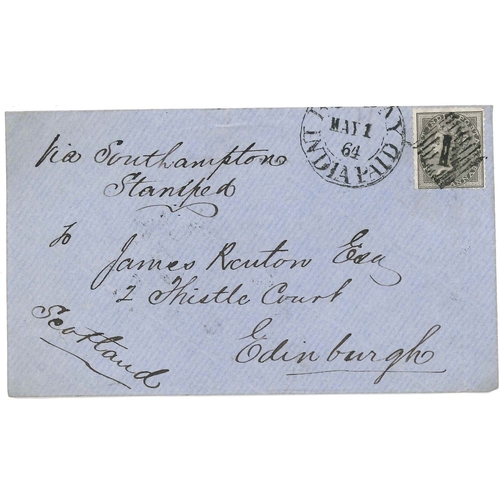 MAY 1
64
INDIA PAID
1
Via Southampton
Stamped
To
James Renton Esq
2 Thistle Court
Edinburgh
Scotland